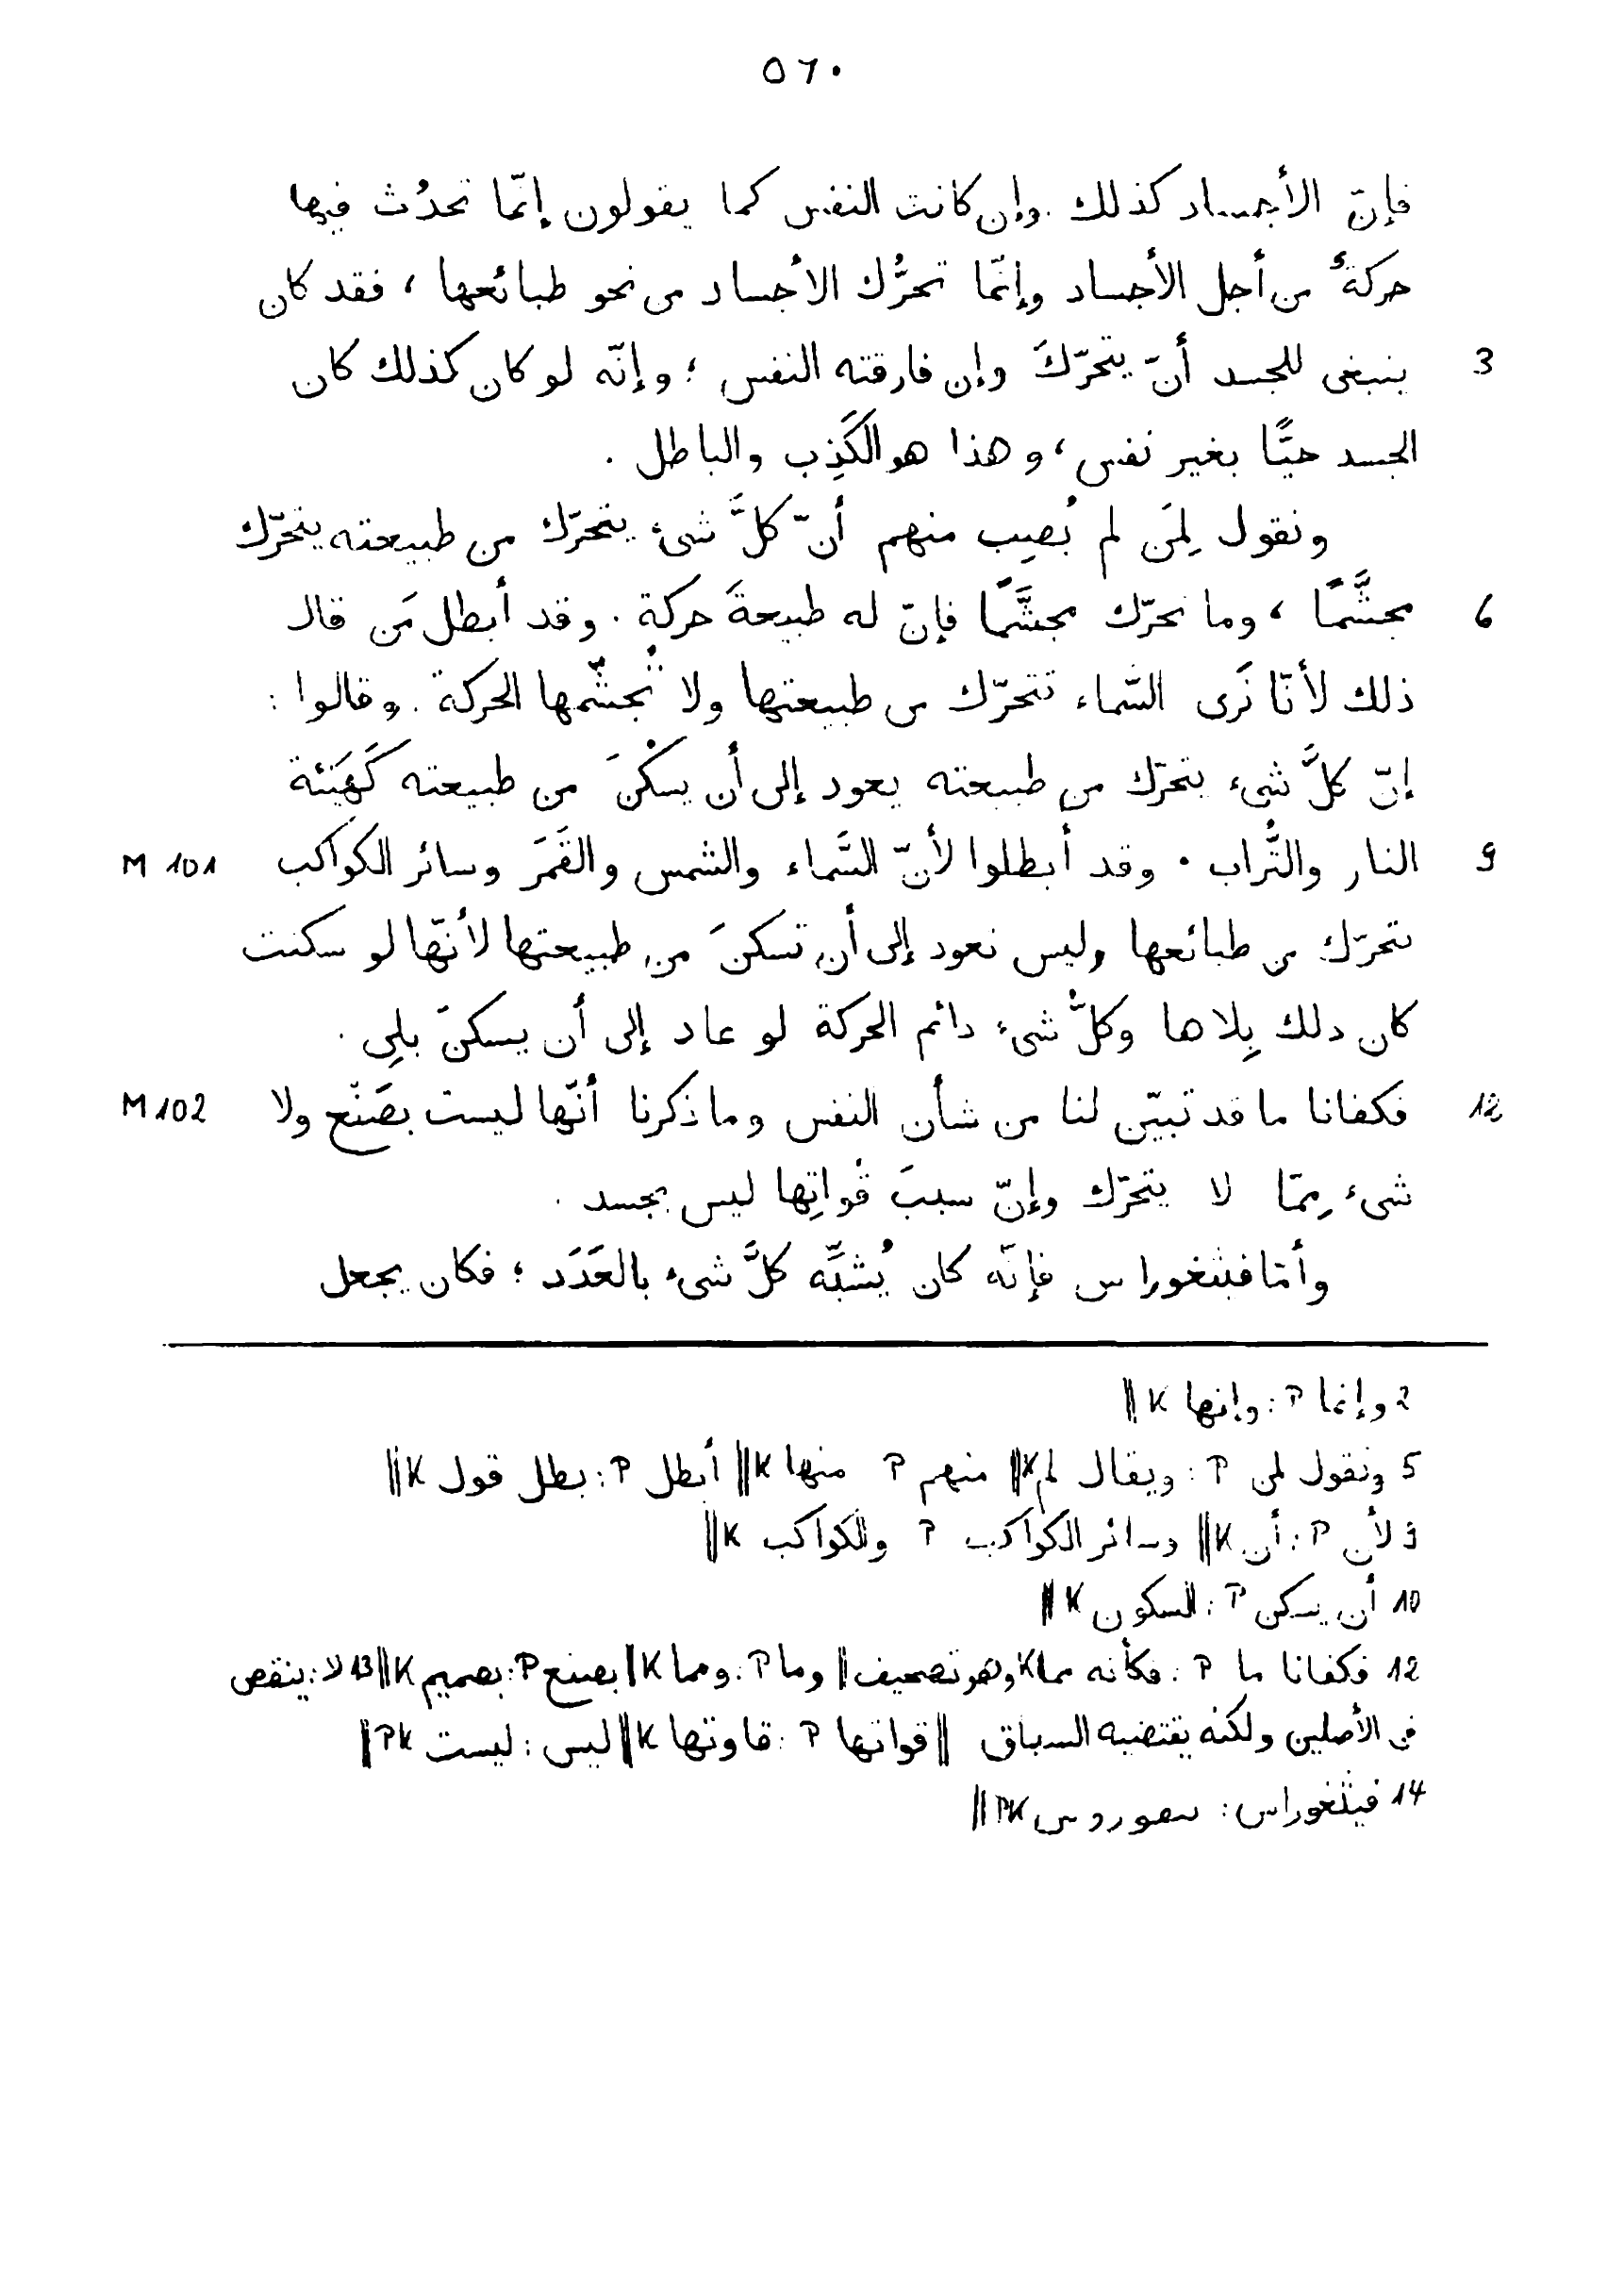 ٥٦٠
فإنّ الأجساد كذلك . وإن كانت النفس كما يقولون إنّما تحدُث فيها
حركةٌ من أجل الأجساد وإنّما تحرُّك الأجساد من نحو طبائعها ، فقد كان
3 ينبغى للجسد أنّ يتحرّكَ وإن فارقته النفس ؛ وإنّه لو كان كذلك كان
الجسد حيًّا بغير نفس ، وهذا هو الكَذِب والباطل .
ونقول لِمَن لم يُصِب منهم أنّ كلَّ شىء يتحرّك من طبيعته يتحرّك
6 مجشَّمًا ، وما تحرّك مجشَّمًا فإنّ له طبيعةَ حركة . وقد أبطل مَن قال
ذلك لأنّا نَرى السَّماء تتحرّك من طبيعتها ولا تُجشَّمها الحركة . وقالوا :
إنّ كلَّ شىء يتحرّك من طبيعته يعود إلى أن يسكُنَ من طبيعته كَهَيَئة
9 النار والتُّراب . وقد أبطلوا لأنّ السَّماء والشمس والقَمَرَ وسائر الكواكب M 101
تتحرّك من طبائعها وليس تعود إلى أن تسكنَ من طبيعتها لأنّها لو سكنت
كان ذلك بِلاها وكلُّ شىء دائم الحركة لو عاد إلى أن يسكنَ بلِى .
12 فكفانا ما قد تبيّن لنا من شأن النفس وما ذكرنا أنّها ليست بصَنْع ولا M 102
شىء مِمّا لا يتحرّك وإنّ سببَ قُواتِها ليس بجسد .
وأمّا فيثغوراس فإنّه كان يُشبِّه كلَّ شىء بالعَدَد ؛ فكان يجعل
2 وإنما P : وإنها K ||
5 ونقول لمن P : ويقال لم K || منهم P منها K || أبطل P : بطل قول K ||
9 لأن P : أن K || وسائر الكواكب P والكواكب K ||
10 أن يسكن P : السكون K ||
12 فكفانا ما P : فكأنه مما K وهو تصحيف || وما P : ومما K || بصنع P : بصميم K || 13 لا : ينقص
فى الأصلين ولكنه يقتضيه السياق || قواتها P : قاوتها K || ليس : ليست PK ||
14 فيثغوراس : PK ||